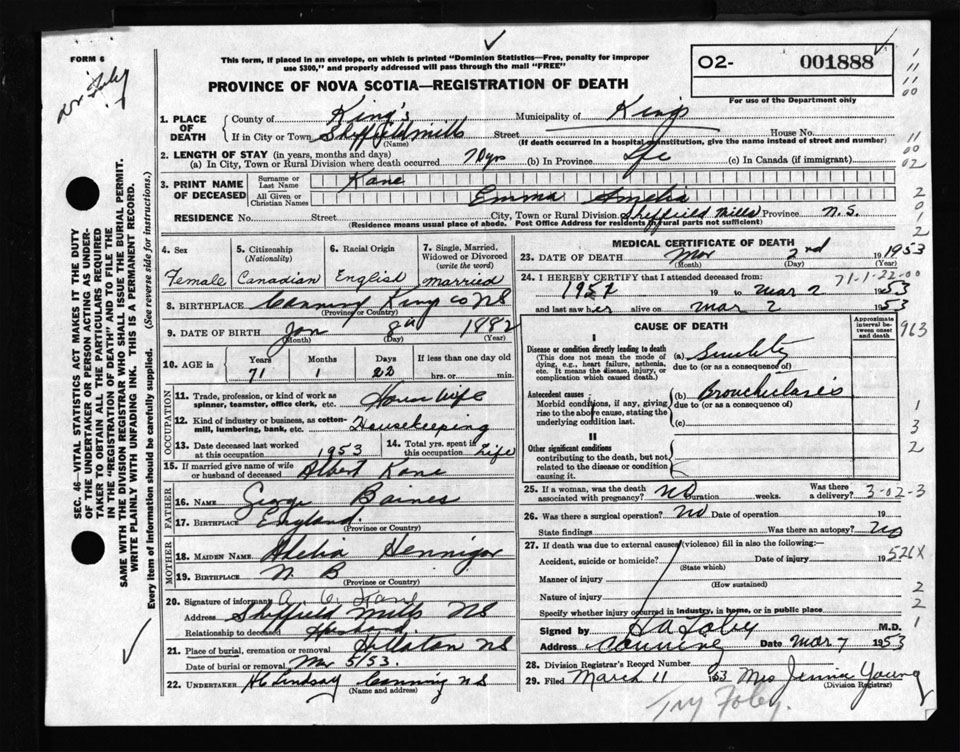 FORM 6
Dr Foley
This form, if placed in an envelope, on which is printed "Dominion Statistics—Free, penalty for improper
use $300," and properly addressed will pass through the mail "FREE"
O2- 001888
For use of the Department only
PROVINCE OF NOVA SCOTIA—REGISTRATION OF DEATH
1. PLACE OF DEATH
County of King's Municipality of Kings
If in City or Town Sheffield mills Street House No.
(Name) (If death occurred in a hospital or institution, give the name instead of street and number)
2. LENGTH OF STAY (in years, months and days)
(a) In City, Town or Rural Division where death occurred 7 Dys (b) In Province Life (c) In Canada (if immigrant)
3. PRINT NAME OF DECEASED
Surname or Last Name Kane
All Given or Christian Names Emma Amelia
RESIDENCE No. Street City, Town or Rural Division Sheffield Mills Province N.S.
(Residence means usual place of abode. Post Office Address for residents in rural parts not sufficient)
4. Sex Female
5. Citizenship (Nationality) Canadian
6. Racial Origin English
7. Single, Married, Widowed or Divorced (write the word) married
8. BIRTHPLACE Canning Kings Co NS
(Province or Country)
9. DATE OF BIRTH Jan 8th 1882
(Month) (Day) (Year)
10. AGE in Years 71 Months 1 Days 22 If less than one day old hrs. or min.
OCCUPATION
11. Trade, profession, or kind of work as spinner, teamster, office clerk, etc. House wife
12. Kind of industry or business, as cotton-mill, lumbering, bank, etc. Housekeeping
13. Date deceased last worked at this occupation 1953
14. Total yrs. spent in this occupation Life
15. If married give name of wife or husband of deceased Albert Kane
FATHER
16. NAME George Baines
17. BIRTHPLACE England
(Province or Country)
MOTHER
18. MAIDEN NAME Adelia Hennigar
19. BIRTHPLACE N B
(Province or Country)
20. Signature of informant A. A. Kane
Address Sheffield Mills NS
Relationship to deceased Husband
21. Place of burial, cremation or removal Hillaton NS
Date of burial or removal Mar 5/53.
22. UNDERTAKER H C Lindsay Canning NS
(Name and address)
MEDICAL CERTIFICATE OF DEATH
23. DATE OF DEATH Mar 2nd 1953
(Month) (Day) (Year)
71-1-22-00
24. I HEREBY CERTIFY that I attended deceased from
19 to mar 2 1953
and last saw her alive on mar 2 1953
CAUSE OF DEATH
Approximate interval between onset and death
963
I
Disease or condition directly leading to death
(This does not mean the mode of dying, e.g., heart failure, asthenia, etc. It means the disease, injury, or complication which caused death.)
(a) Senility
due to (or as a consequence of)
Antecedent causes
Morbid conditions, if any, giving rise to the above cause, stating the underlying condition last.
(b) Bronchiectasis
due to (or as a consequence of)
(c)
II
Other significant conditions
contributing to the death, but not related to the disease or condition causing it.
25. If a woman, was the death associated with pregnancy? no Duration weeks. Was there a delivery? 3-02-3
26. Was there a surgical operation? No Date of operation 19
State findings Was there an autopsy? No
27. If death was due to external causes (violence) fill in also the following:—
Accident, suicide or homicide? Date of injury 19 526X
(State which)
Manner of injury
(How sustained)
Nature of injury
Specify whether injury occurred in industry, in home, or in public place
Signed by H A Foley M.D.
Address Canning Date mar 7 1953
28. Division Registrar's Record Number 9
29. Filed March 11 1953 Mrs Jennie Young
(Division Registrar)
Try Foley.
SEC. 46—VITAL STATISTICS ACT MAKES IT THE DUTY
OF THE UNDERTAKER OR PERSON ACTING AS UNDER-
TAKER TO OBTAIN ALL THE PARTICULARS REQUIRED
IN THE "REGISTRATION OF DEATH" AND TO FILE THE
SAME WITH THE DIVISION REGISTRAR WHO SHALL ISSUE THE BURIAL PERMIT.
WRITE PLAINLY WITH UNFADING INK. THIS IS A PERMANENT RECORD.
Every item of information should be carefully supplied. (See reverse side for instructions.)